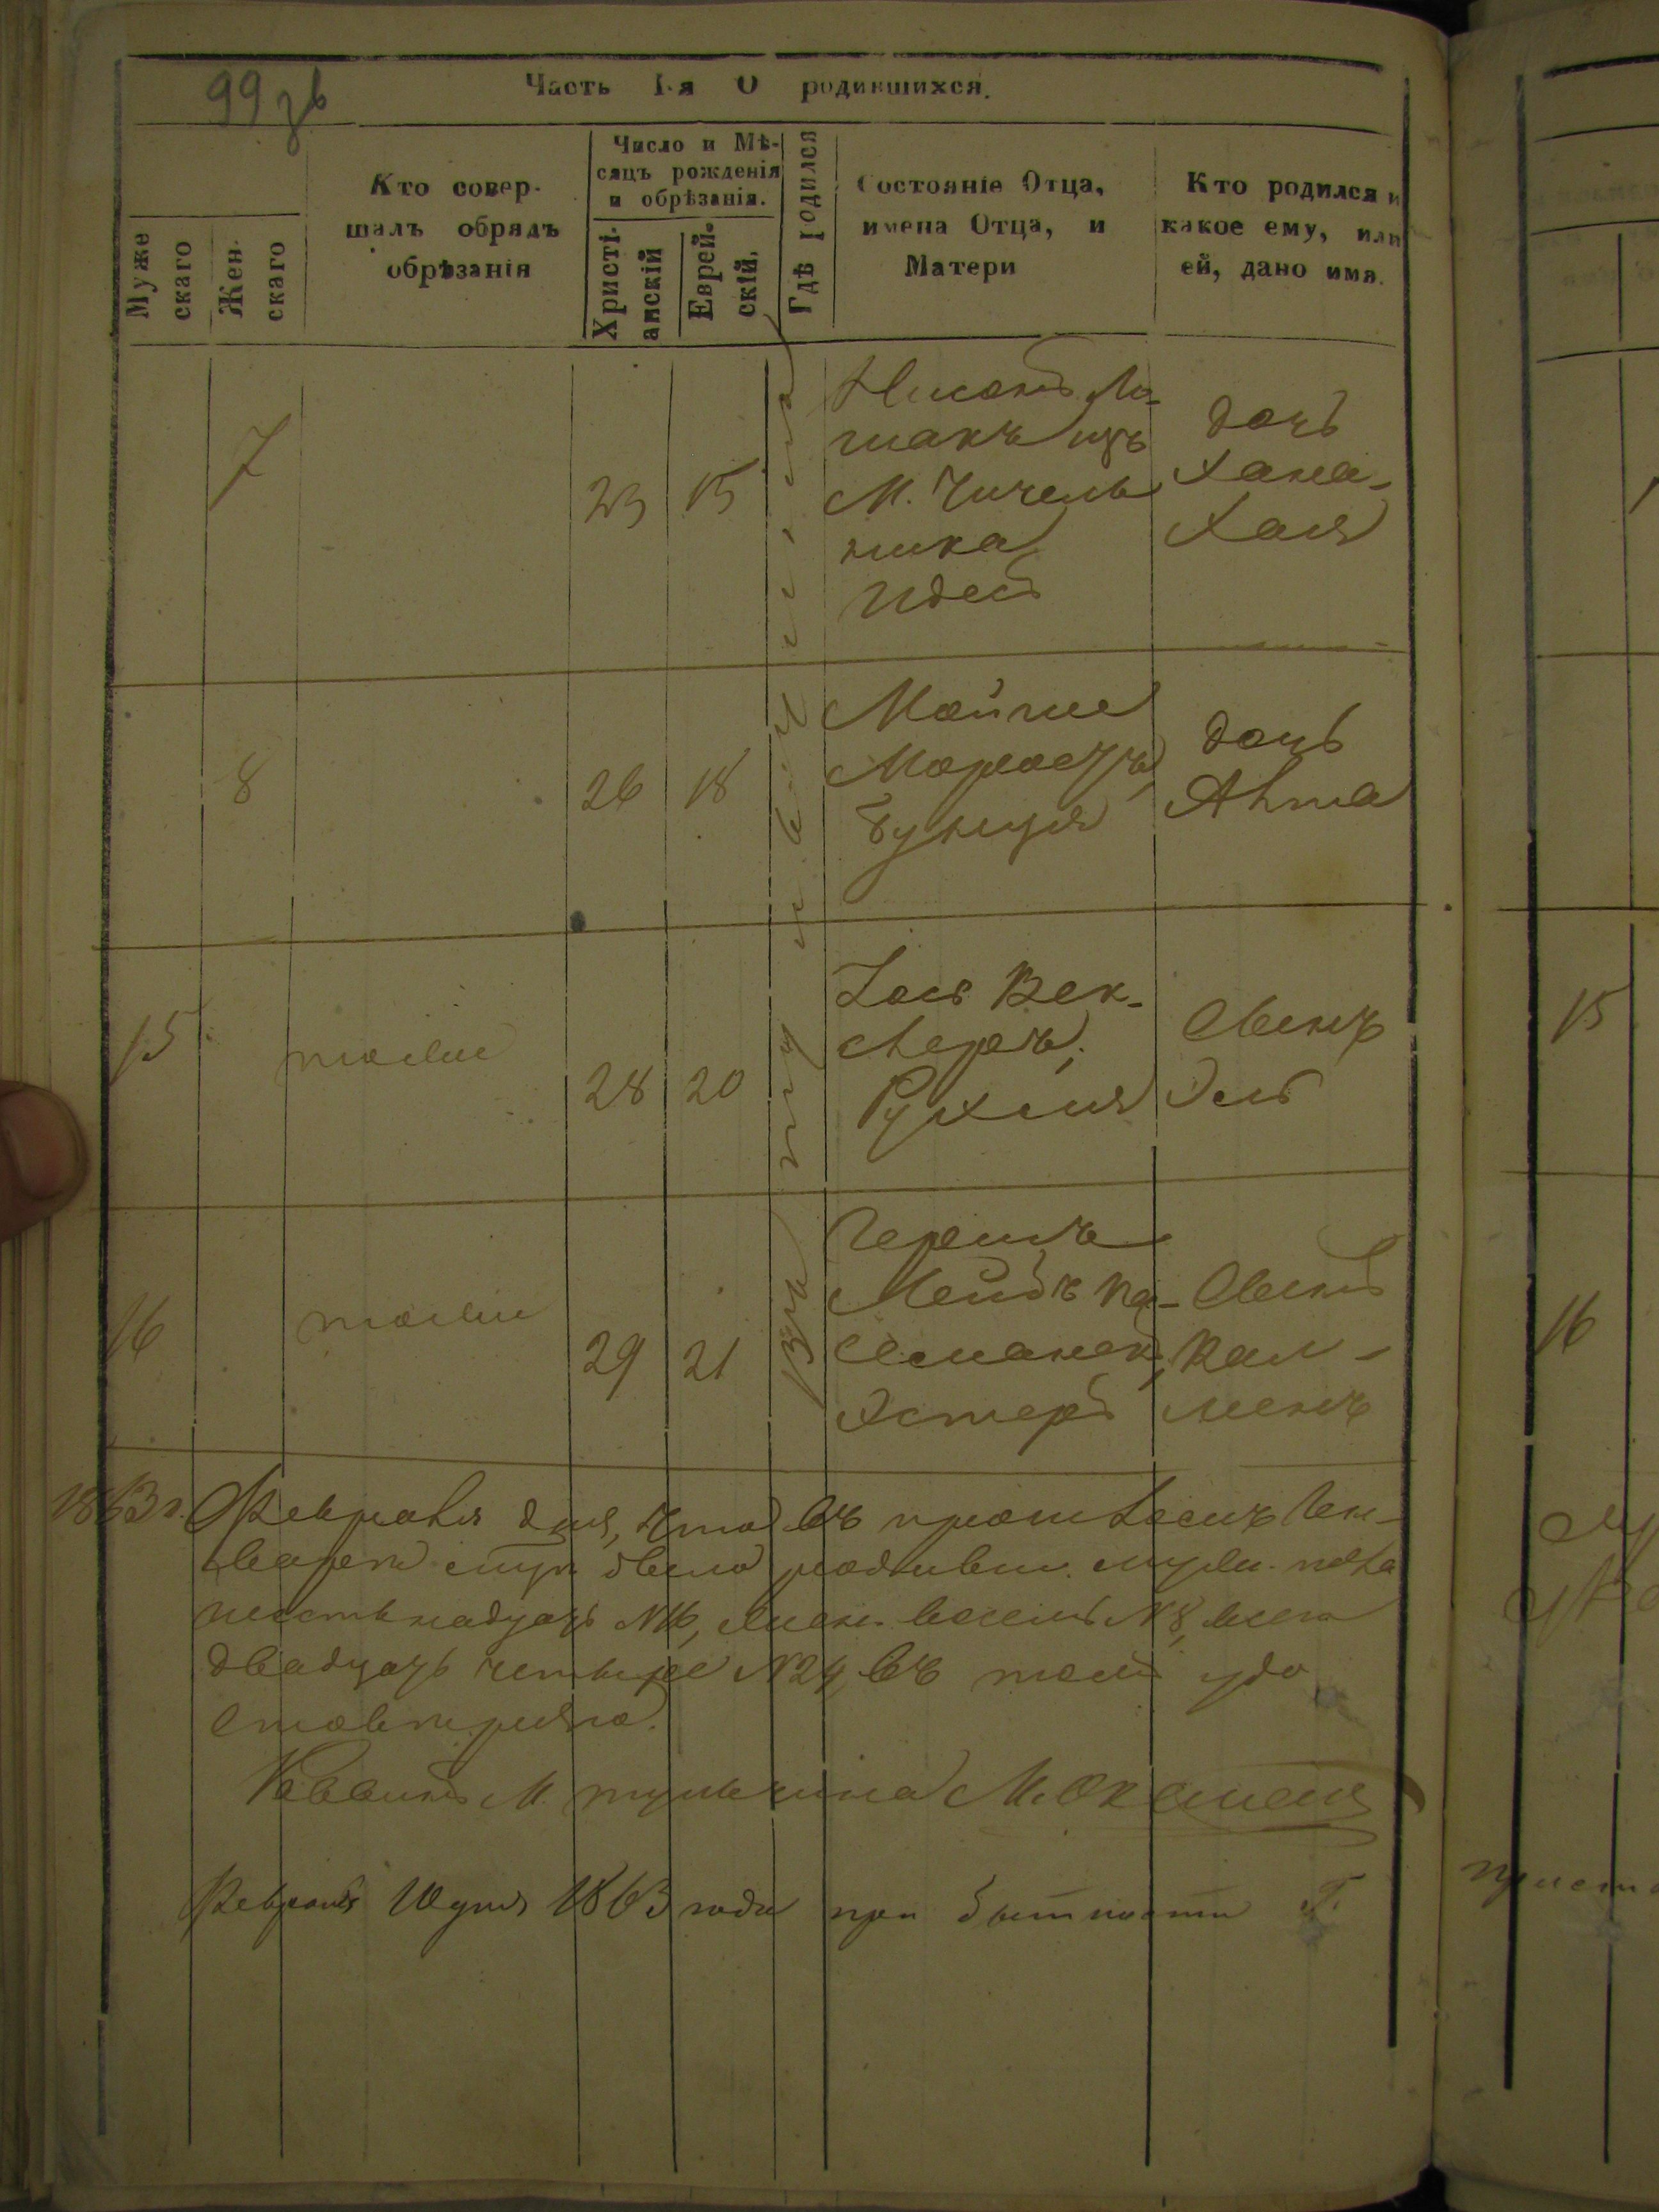 99 зв
Часть I-я О родившихся.
Муже
скаго
Жен.
скаго
Кто совер-
шалъ обрядъ
обрѣзанія
Число и Мѣ-
сяцъ рожденія
и обрѣзанія.
Христі-
анскій
Еврей-
скій.
Гдѣ родился
Состояніе Отца,
имена Отца, и
Матери
Кто родился и
какое ему, или
ей, дано имя.
7
23 15
Нисонъ
изъ
М. Чичель
ника
Идесъ
дочь
Хана-
Хая
8
26 18
Мойше
Бунця
дочь
15
тоже
28 20
Іось Век-
слеръ,
Рухля
Сынъ
Эль
16
тоже
29 21
Гершъ
Эстеръ
Сынъ
Кал-
менъ
1863 г. Февраля дня, что въ прошломъ Ген-
варѣ было родивш. муж. пола
шестнадцать №16, женс. восемь №8, всего
двадцать четыре №24, въ томъ удо
стовѣряю.
Раввинъ М. Тульчина М.
Февраля дня 1863 года при бытности Г.
15
16